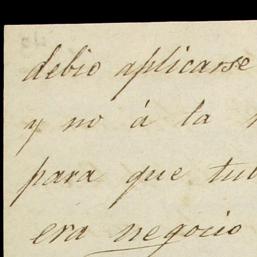 debio aplicarse
y no á la
para que
era negocio